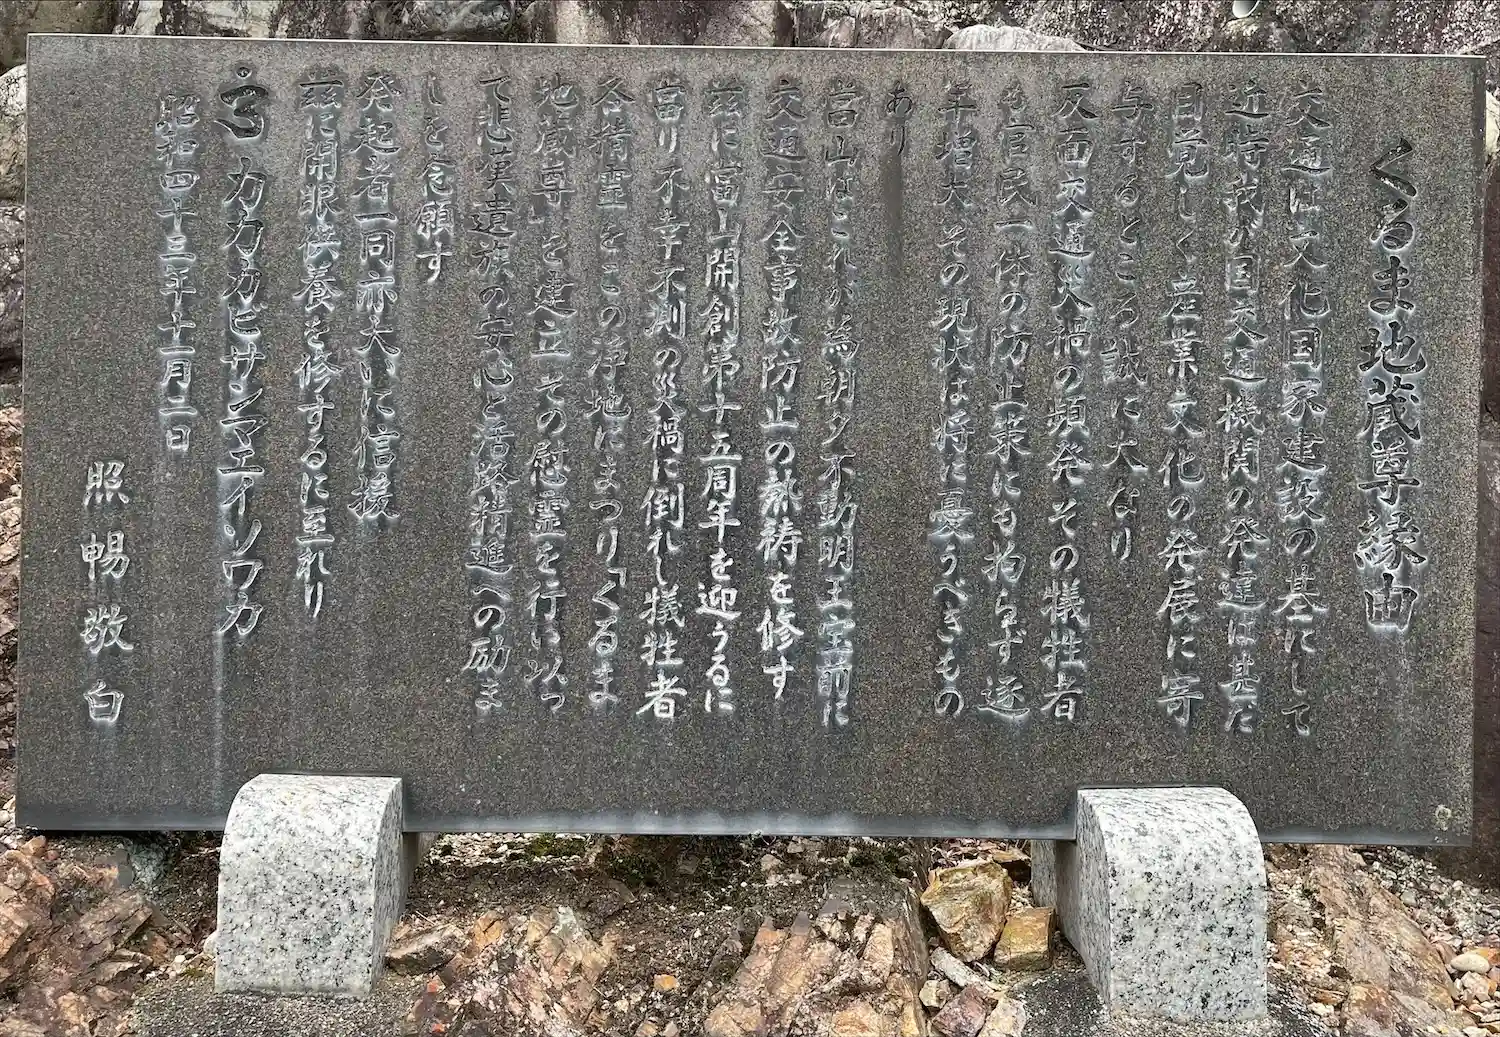 くるま地蔵尊縁由
交通は文化国家建設の基にして
近時我が国交通機関の発達は甚だ
目覚しく産業文化の発展に寄
与するところ誠に大なり
反面交通災禍の頻発その犠牲者
も官民一体の防止策にも拘らず逐
年増大その現状は将に憂うべきもの
あり
當山はこれが為朝夕不動明王宝前に
交通安全事故防止の熱祷を修す
茲に當山開創第十五周年を迎うるに
當り不幸不測の災禍に倒れし犠牲者
各精霊をこの浄地にまつり「くるま
地蔵尊」を建立その慰霊を行い以っ
て悲嘆遺族の安心と活路精進への励ま
しを念願す
発起者一同亦大いに信援
茲に開眼供養を修するに至れり
カカカビサンマエイソワカ
昭和四十三年十一月二日
照暢敬白